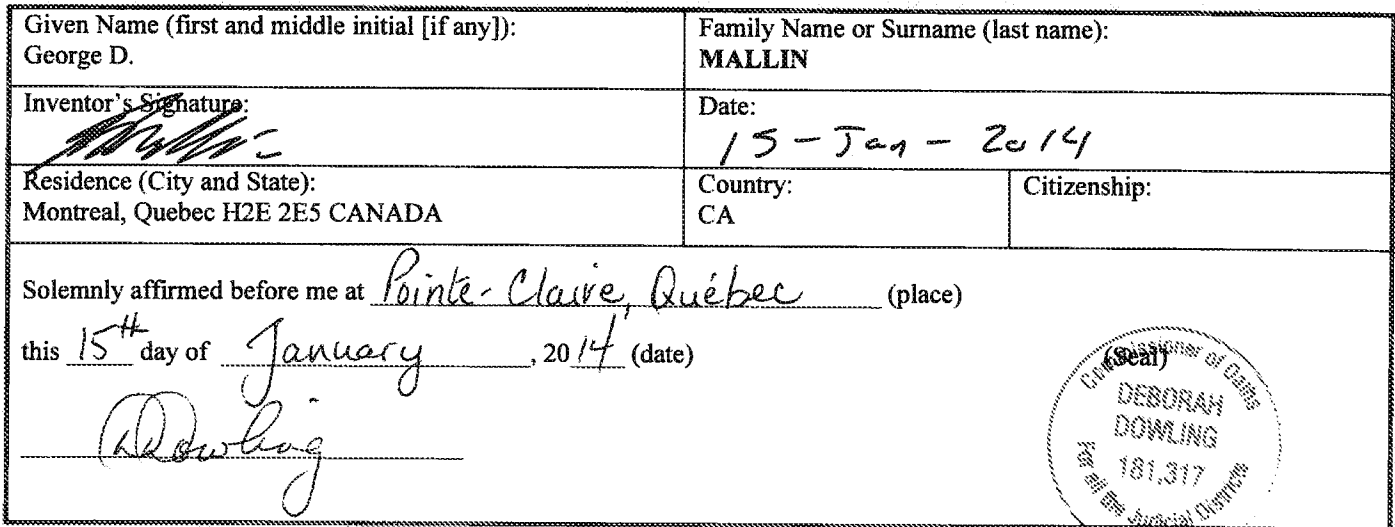 Given Name (first and middle initial [if any]):
George D.
Family Name or Surname (last name):
MALLIN
Inventor's Signature:
Date:
15-Jan-2014
Residence (City and State):
Montreal, Quebec H2E 2E5 CANADA
Country:
CA
Citizenship:
Solemnly affirmed before me at Pointe-Claire, Québec (place)
this 15th day of January, 2014 (date)
DDowling
(Seal)
Commissioner of Oaths
DEBORAH
DOWLING
181,317
For all the Judicial Districts